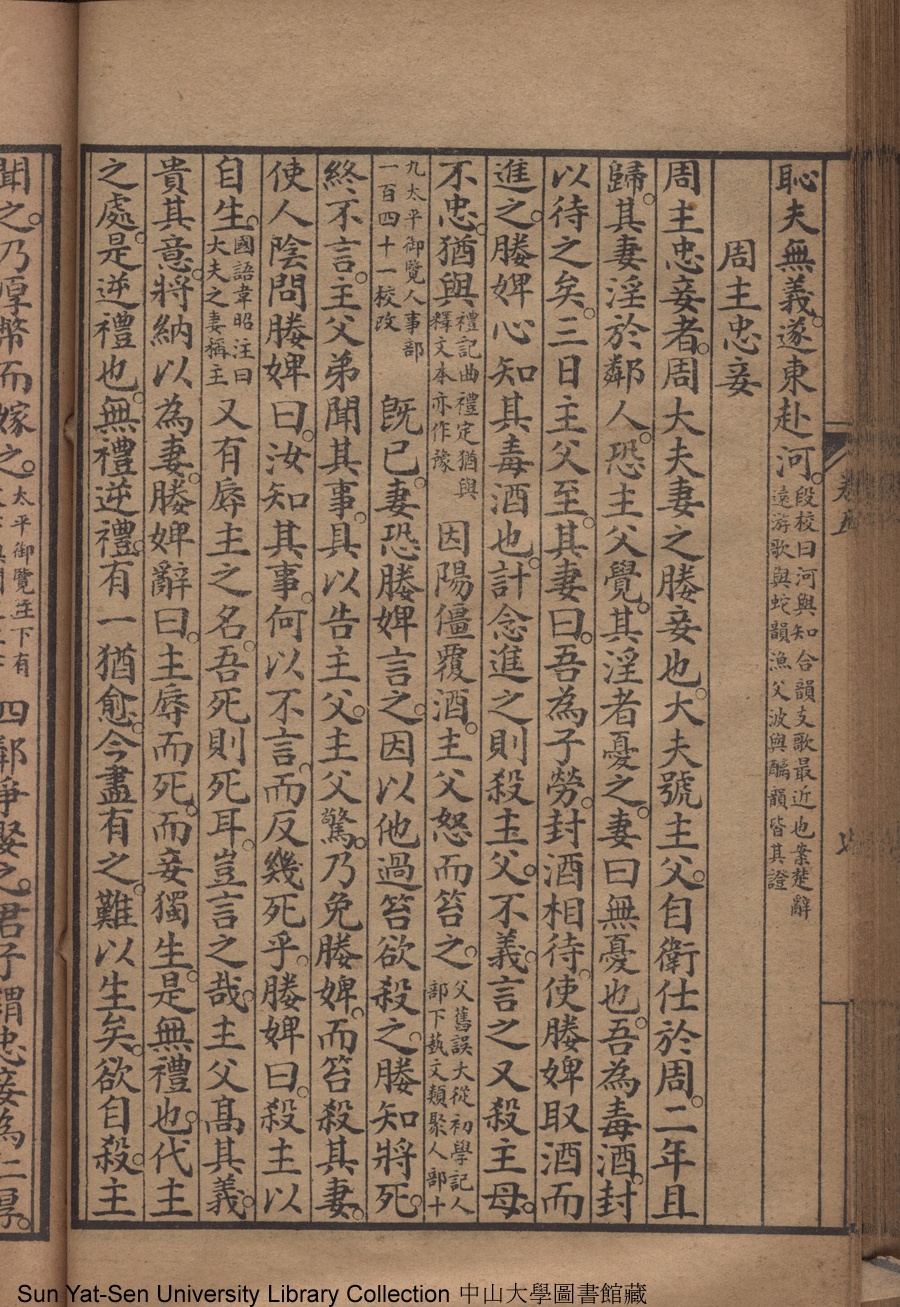 恥夫無義。遂東赴河。段校曰河與知合韻支歌最近也案楚辭遠游歌與蛇韻漁父波與醨韻皆其證
周主忠妾
周主忠妾者。周大夫妻之媵妾也。大夫號主父。自衛仕於周。二年且
歸。其妻淫於鄰人。恐主父覺。其淫者憂之。妻曰無憂也。吾為毒酒。封
以待之矣。三日主父至。其妻曰。吾為子勞。封酒相待。使媵婢取酒而
進之。媵婢心知其毒酒也。計念進之則殺主父。不義。言之又殺主母。
不忠。猶與禮記曲禮定猶與釋文本亦作豫因陽僵覆酒。主父怒而笞之。父舊誤大從初學記人部下藝文類聚人部十
九太平御覽人事部一百四十一校改旣已。妻恐媵婢言之。因以他過笞欲殺之。媵知將死。
終不言。主父弟聞其事。具以告主父。主父驚。乃免媵婢。而笞殺其妻。
使人陰問媵婢曰。汝知其事。何以不言。而反幾死乎。媵婢曰。殺主以
自生。國語韋昭注曰大夫之妻稱主又有辱主之名。吾死則死耳。豈言之哉。主父高其義。
貴其意。將納以為妻。媵婢辭曰。主辱而死。而妾獨生。是無禮也。代主
之處。是逆禮也。無禮逆禮。有一猶愈。今盡有之。難以生矣。欲自殺。主
聞之。乃厚幣而嫁之。太平御覽下有四鄰爭娶之。君子謂忠妾為仁厚。
Sun Yat-Sen University Library Collection 中山大學圖書館藏